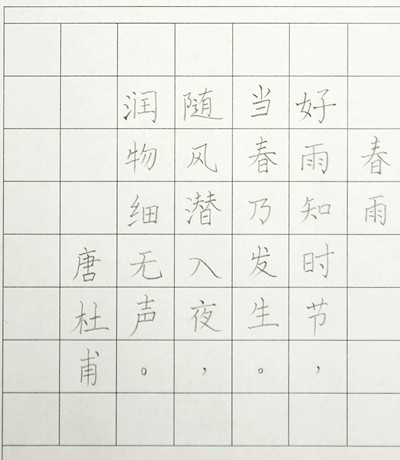 春雨
好雨知时节，
当春乃发生。
随风潜入夜，
润物细无声。
唐杜甫